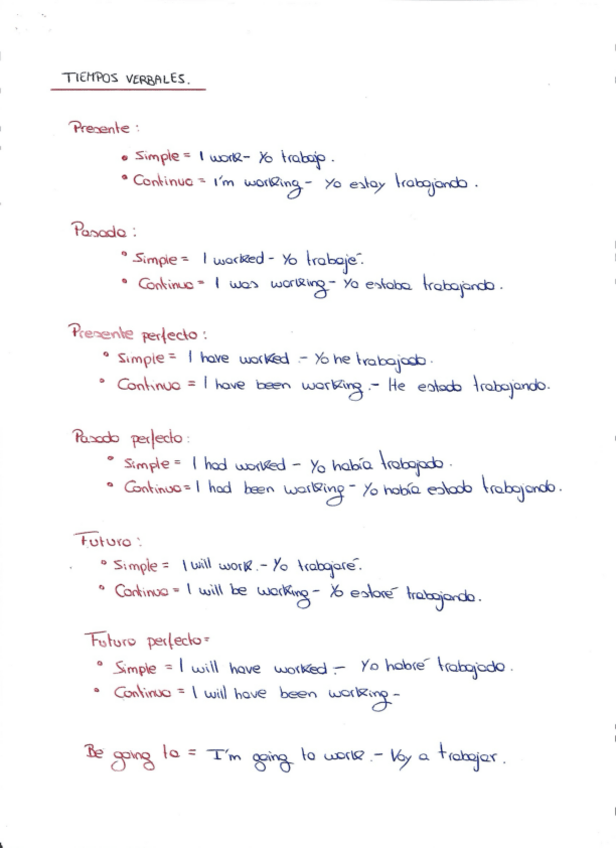 TIEMPOS VERBALES.
Presente:
• Simple = I work - Yo trabajo.
• Continuo = I'm working - Yo estoy trabajando.
Pasado:
• Simple = I worked - Yo trabajé.
• Continuo = I was working - Yo estaba trabajando.
Presente perfecto:
• Simple = I have worked.- Yo he trabajado.
• Continuo = I have been working.- He estado trabajando.
Pasado perfecto:
• Simple = I had worked - Yo había trabajado.
• Continuo = I had been working - Yo había estado trabajando.
Futuro:
• Simple = I will work.- Yo trabajaré.
• Continuo = I will be working - Yo estaré trabajando.
Futuro perfecto=
• Simple = I will have worked.- Yo habré trabajado.
• Continuo = I will have been working -
Be going to = I'm going to work.- Voy a trabajar.